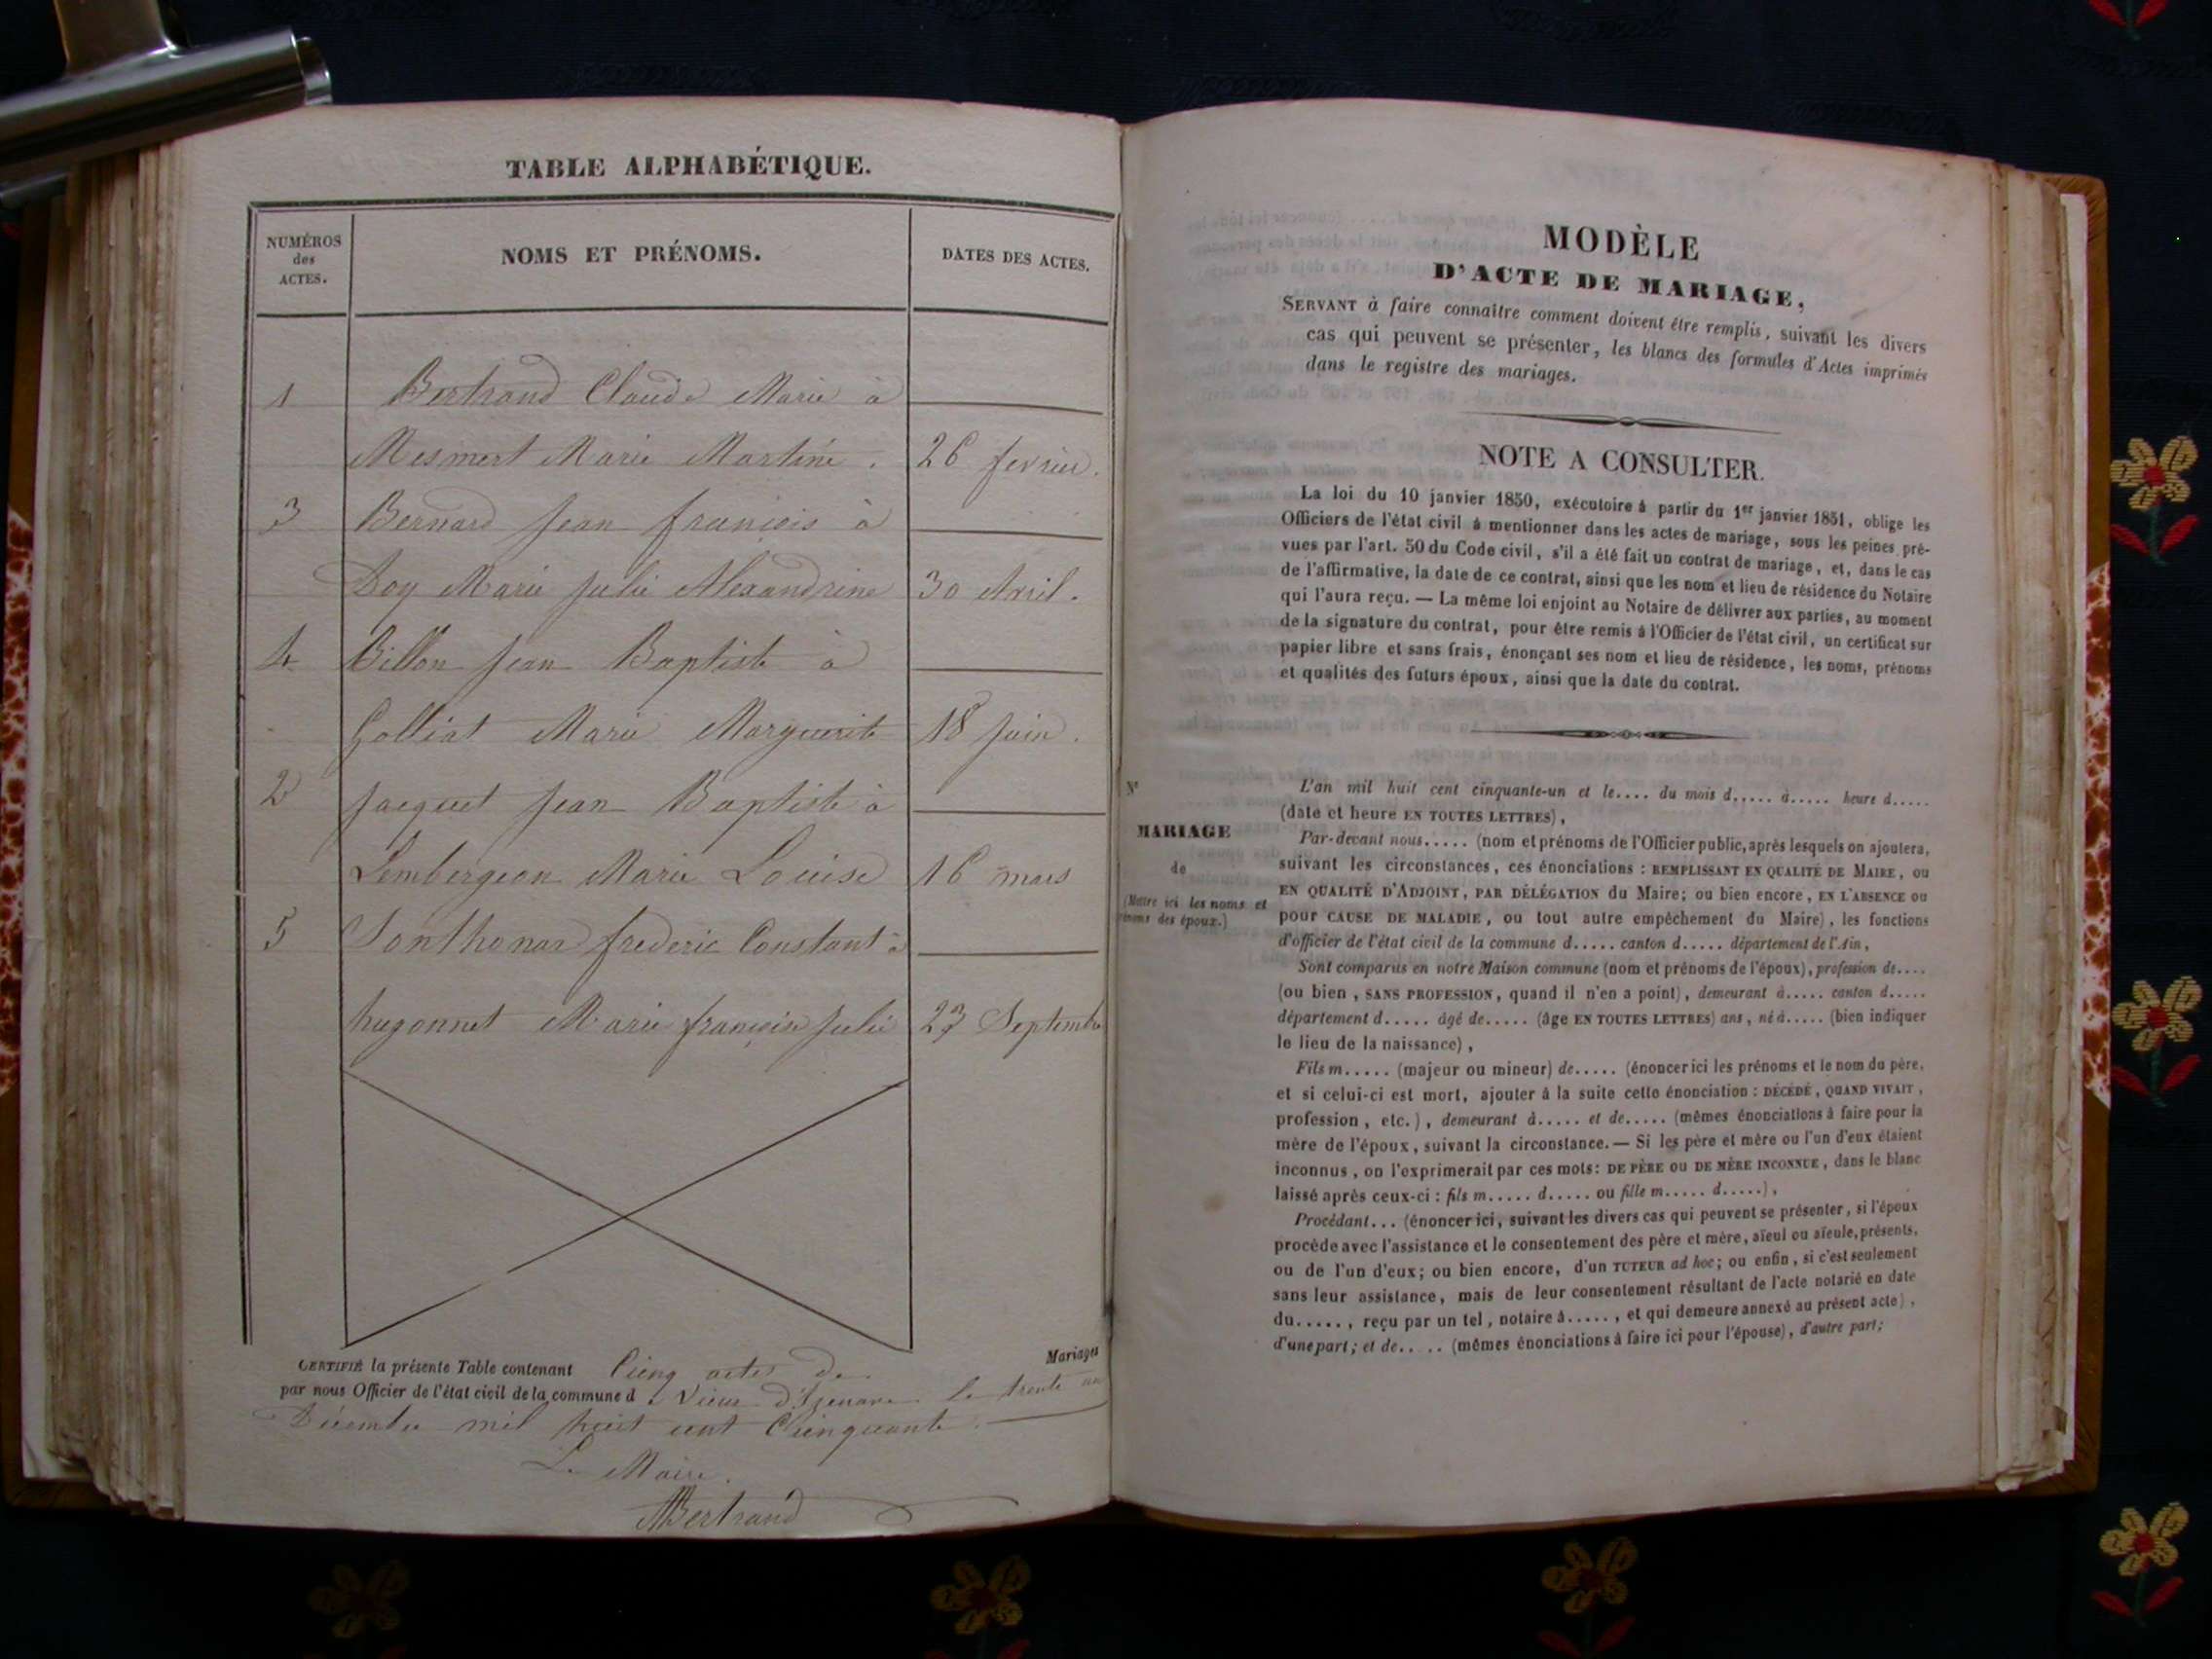 TABLE ALPHABÉTIQUE.
NUMÉROS
des
ACTES.
NOMS ET PRÉNOMS.
DATES DES ACTES.
1 Bertrand Claude Marie à
Mesmert Marie Martine. 26 fevrier.
3 Bernard Jean françois à
Doy Marie Julie Alexandrine 30 Avril.
4 Billon Jean Baptiste à
Golliat Marie Marguerite 18 Juin.
2 Jacquet Jean Baptiste à
Lembergeon Marie Louise 16 mars
5 Sonthonax frederic Constant à
hugonnet Marie françoise Julie 23 Septembre
CERTIFIÉ la présente Table contenant Cinq actes de Mariages
par nous Officier de l'état civil de la commune d Vieux d'Izenave le trente un
Décembre mil huit cent Cinquante.
Le Maire.
Bertrand
MODÈLE
D'ACTE DE MARIAGE,
SERVANT à faire connaître comment doivent être remplis, suivant les divers
cas qui peuvent se présenter, les blancs des formules d'Actes imprimés
dans le registre des mariages.
NOTE A CONSULTER.
La loi du 10 janvier 1850, exécutoire à partir du 1er janvier 1851, oblige les
Officiers de l'état civil à mentionner dans les actes de mariage, sous les peines pré-
vues par l'art. 50 du Code civil, s'il a été fait un contrat de mariage, et, dans le cas
de l'affirmative, la date de ce contrat, ainsi que les nom et lieu de résidence du Notaire
qui l'aura reçu. — La même loi enjoint au Notaire de délivrer aux parties, au moment
de la signature du contrat, pour être remis à l'Officier de l'état civil, un certificat sur
papier libre et sans frais, énonçant ses nom et lieu de résidence, les noms, prénoms
et qualités des futurs époux, ainsi que la date du contrat.
N°
MARIAGE
de
(Mettre ici les noms et
prénoms des époux.)
L'an mil huit cent cinquante-un et le.... du mois d..... à..... heure d.....
(date et heure EN TOUTES LETTRES),
Par-devant nous..... (nom et prénoms de l'Officier public, après lesquels on ajoutera,
suivant les circonstances, ces énonciations : REMPLISSANT EN QUALITÉ DE MAIRE, ou
EN QUALITÉ D'ADJOINT, PAR DÉLÉGATION du Maire; ou bien encore, EN L'ABSENCE ou
pour CAUSE DE MALADIE, ou tout autre empêchement du Maire), les fonctions
d'officier de l'état civil de la commune d..... canton d..... département de l'Ain,
Sont comparus en notre Maison commune (nom et prénoms de l'époux), profession de....
(ou bien, SANS PROFESSION, quand il n'en a point), demeurant à..... canton d.....
département d..... âgé de..... (âge EN TOUTES LETTRES) ans, né à..... (bien indiquer
le lieu de la naissance),
Fils m..... (majeur ou mineur) de..... (énoncer ici les prénoms et le nom du père,
et si celui-ci est mort, ajouter à la suite cette énonciation : DÉCÉDÉ, QUAND VIVAIT,
profession, etc.), demeurant à..... et de..... (mêmes énonciations à faire pour la
mère de l'époux, suivant la circonstance. — Si les père et mère ou l'un d'eux étaient
inconnus, on l'exprimerait par ces mots: DE PÈRE OU DE MÈRE INCONNUE, dans le blanc
laissé après ceux-ci : fils m..... d..... ou fille m..... d.....),
Procédant... (énoncer ici, suivant les divers cas qui peuvent se présenter, si l'époux
procède avec l'assistance et le consentement des père et mère, aïeul ou aïeule, présents,
ou de l'un d'eux; ou bien encore, d'un TUTEUR ad hoc; ou enfin, si c'est seulement
sans leur assistance, mais de leur consentement résultant de l'acte notarié en date
du....., reçu par un tel, notaire à....., et qui demeure annexé au présent acte),
d'une part; et de..... (mêmes énonciations à faire ici pour l'épouse), d'autre part;